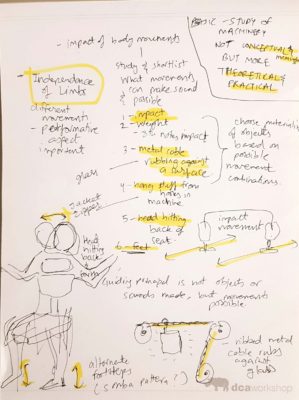 - impact of body movements
BASIC - STUDY OF
MACHINERY
NOT CONCEPTUAL &
BUT MORE
THEORETICAL &
PRACTICAL
- Independence
of Limbs
study of shortlist
What movements
can make sound &
possible
different
movements
- performative
aspect
important
1 - impact
2 - weight
3 notes impact
3 - metal cable
rubbing against
a surface
glass
4 - hang stuff from
hooks in
machine
5 - head hitting
back of
seat
6 - feet
choose materials
of objects
based on
possible
movement
combinations.
jacket
zipper
head
hitting
back of
impact
movement
Guiding principal is not objects or
sounds made, but movements
possible
alternate
footsteps
(samba pattern?)
- ribbed metal
cable rubs
against
glass
dcaworkshop